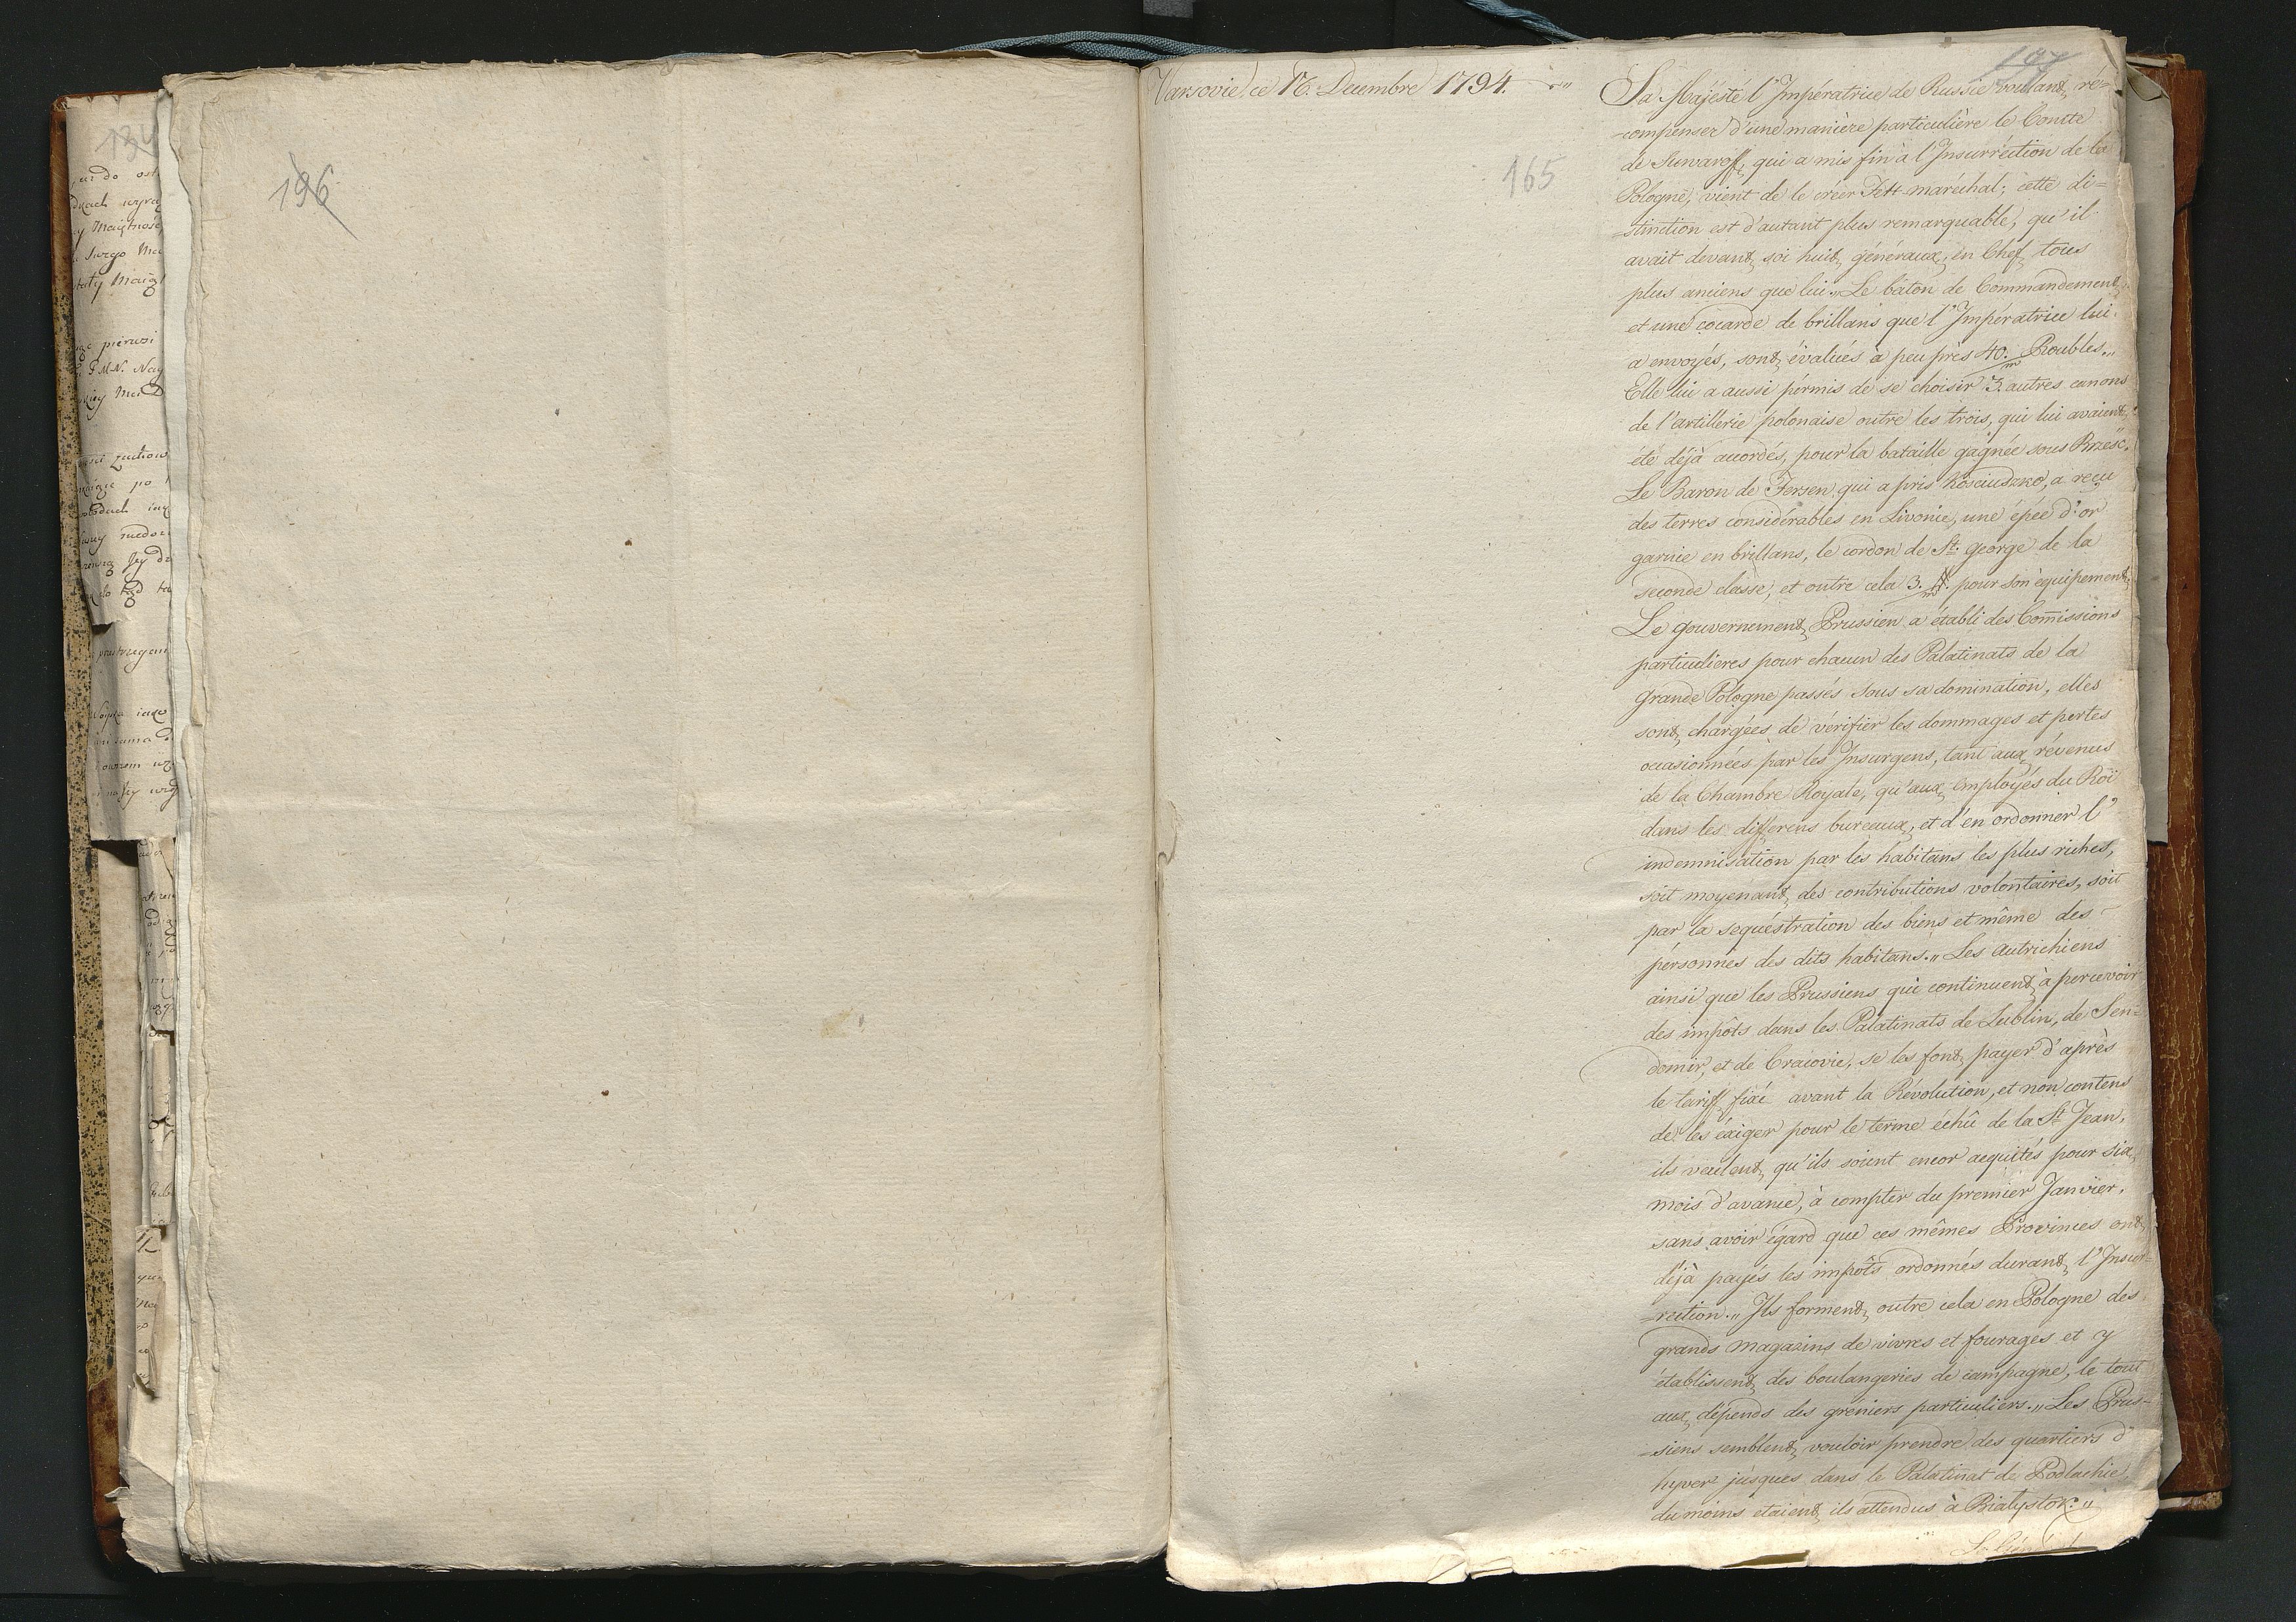 196
Varsovie, ce 16. Decembre 1794.
197
165
Sa Majésté l'Impératrice de Russie voulant ré-
compenser d'une manière particulière le Comte
de Suwaroff, qui a mis fin à l'Insurréction de la
Pologne, vient de le créer Felt-maréchal; cette di=
stinction est d'autant plus remarquable, qu'il
avait devant soi huit généraux en Chef tous
plus anciens que lui.„ Le bâton de Commandement
et une cocarde de brillans que l'Impératrice lui
a envoyés, sont évalués à peu près 40/m. Roubles.„
Elle lui a aussi pérmis de se choisir 3. autres canons
de l'artillerie polonaise outre les trois, qui lui avaient
été déjà accordés, pour la bataille gagnée sous Brześc.
Le Baron de Fersen qui a pris Kosciuszko, a reçu
des terres considérables en Livonie, une épée d'or
garnie en brillans, le cordon de St. george de la
seconde classe, et outre cela 3. pour son équipement.
Le gouvernement Prussien a établi des Comissions
particulieres pour chacun des Palatinats de la
grande Pologne passés sous sa domination, elles
sont chargées de vérifier les dommages et pertes
occasionnées par les Insurgens, tant aux révenus
de la Chambre Royale, qu'aux employés du Roi
dans les differens bureaux, et d'en ordonner l'
indemnisation par les habitans les plus riches,
soit moyenant des contributions volontaires, soit
par la sequéstration des biens et même des
pérsonnes des dits habitans.„ Les autrichiens
ainsi que les Prussiens qui continuent à percevoir
des impôts dans les Palatinats de Lublin, de Sen=
domir, et de Cracovie, se les font payer d'après
le tariff fixé avant la Révolution, et non contens
de les éxiger pour le terme échû de la St Jean,
ils veulent qu'ils soient encor acquités pour six
mois d'avance, à compter du premier Janvier,
sans avoir égard que ces mêmes Provinces ont
déjà payés les impôts ordonnés durant l'Insur-
rection.„ Ils forment outre cela en Pologne des
grands magazins de vivres et fourages et y
établissent des boulangeries de campagne, le tout
aux dépends des greniers particuliers.„ Les Prus-
siens semblent vouloir prendre des quartiers d'
hyver jusques dans le Palatinat de Podlachie
du moins etaient ils attendus à Białystok.„